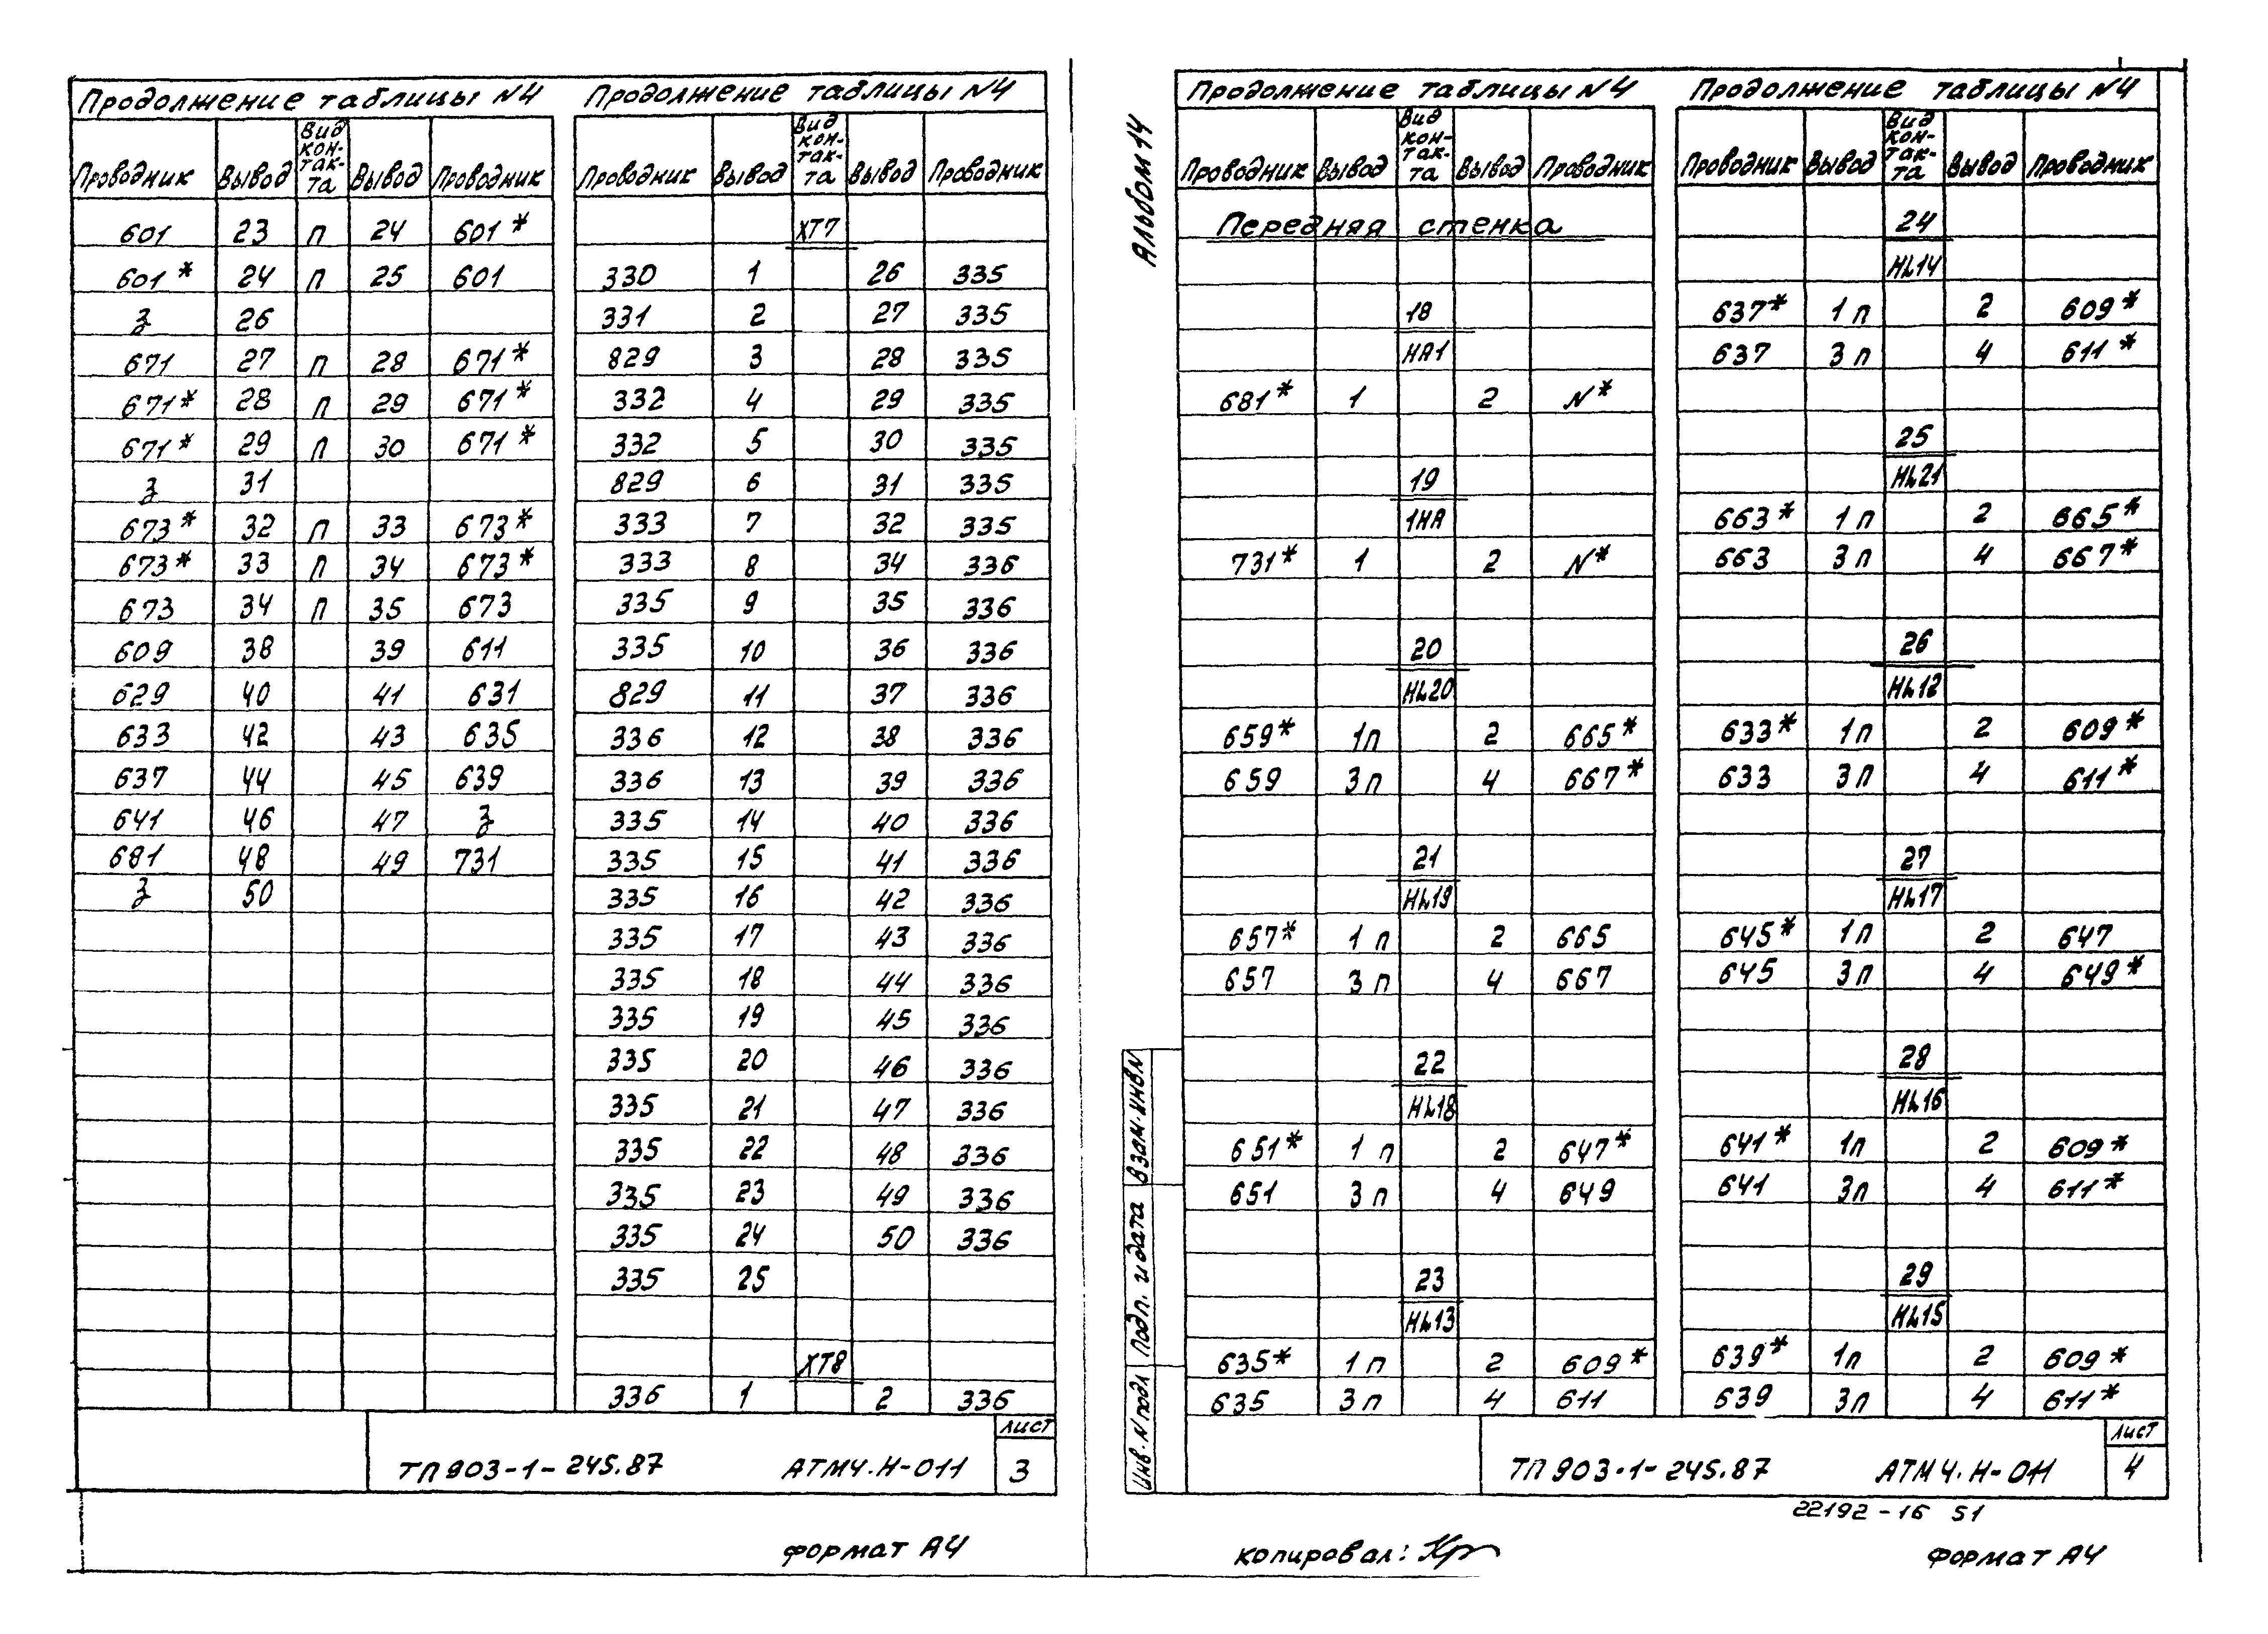 Продолжение таблицы N4
Проводник Вывод Вид кон-так-та Вывод Проводник
601 23 п 24 601*
601* 24 п 25 601
З 26
671 27 п 28 671*
671* 28 п 29 671*
671* 29 п 30 671*
З 31
673* 32 п 33 673*
673* 33 п 34 673*
673 34 п 35 673
609 38 39 611
629 40 41 631
633 42 43 635
637 44 45 639
641 46 47 З
681 48 49 731
З 50
Продолжение таблицы N4
Проводник Вывод Вид кон-так-та Вывод Проводник
ХТ7
330 1 26 335
331 2 27 335
829 3 28 335
332 4 29 335
332 5 30 335
829 6 31 335
333 7 32 335
333 8 34 336
335 9 35 336
335 10 36 336
829 11 37 336
336 12 38 336
336 13 39 336
335 14 40 336
335 15 41 336
335 16 42 336
335 17 43 336
335 18 44 336
335 19 45 336
335 20 46 336
335 21 47 336
335 22 48 336
335 23 49 336
335 24 50 336
335 25
ХТ8
336 1 2 336
ТП903-1-245.87 АТМ4.Н-011
Лист
3
Формат А4
Альбом 14
Продолжение таблицы N4
Проводник Вывод Вид кон-так-та Вывод Проводник
Передняя стенка
18
НА1
681* 1 2 N*
19
1НА
731* 1 2 N*
20
HL20
659* 1п 2 665*
659 3п 4 667*
21
HL19
657* 1п 2 665
657 3п 4 667
22
HL18
651* 1п 2 647*
651 3п 4 649
23
HL13
635* 1п 2 609*
635 3п 4 611
Продолжение таблицы N4
Проводник Вывод Вид кон-так-та Вывод Проводник
24
HL14
637* 1п 2 609*
637 3п 4 611*
25
HL21
663* 1п 2 665*
663 3п 4 667*
26
HL12
633* 1п 2 609*
633 3п 4 611*
27
HL17
645* 1п 2 647
645 3п 4 649*
28
HL16
641* 1п 2 609*
641 3п 4 611*
29
HL15
639* 1п 2 609*
639 3п 4 611*
Инв. N подл Подп. и дата Взам. инв N
ТП 903-1-245.87 АТМ4.Н-011
Лист
4
22192-16 51
Копировал:
Формат А4